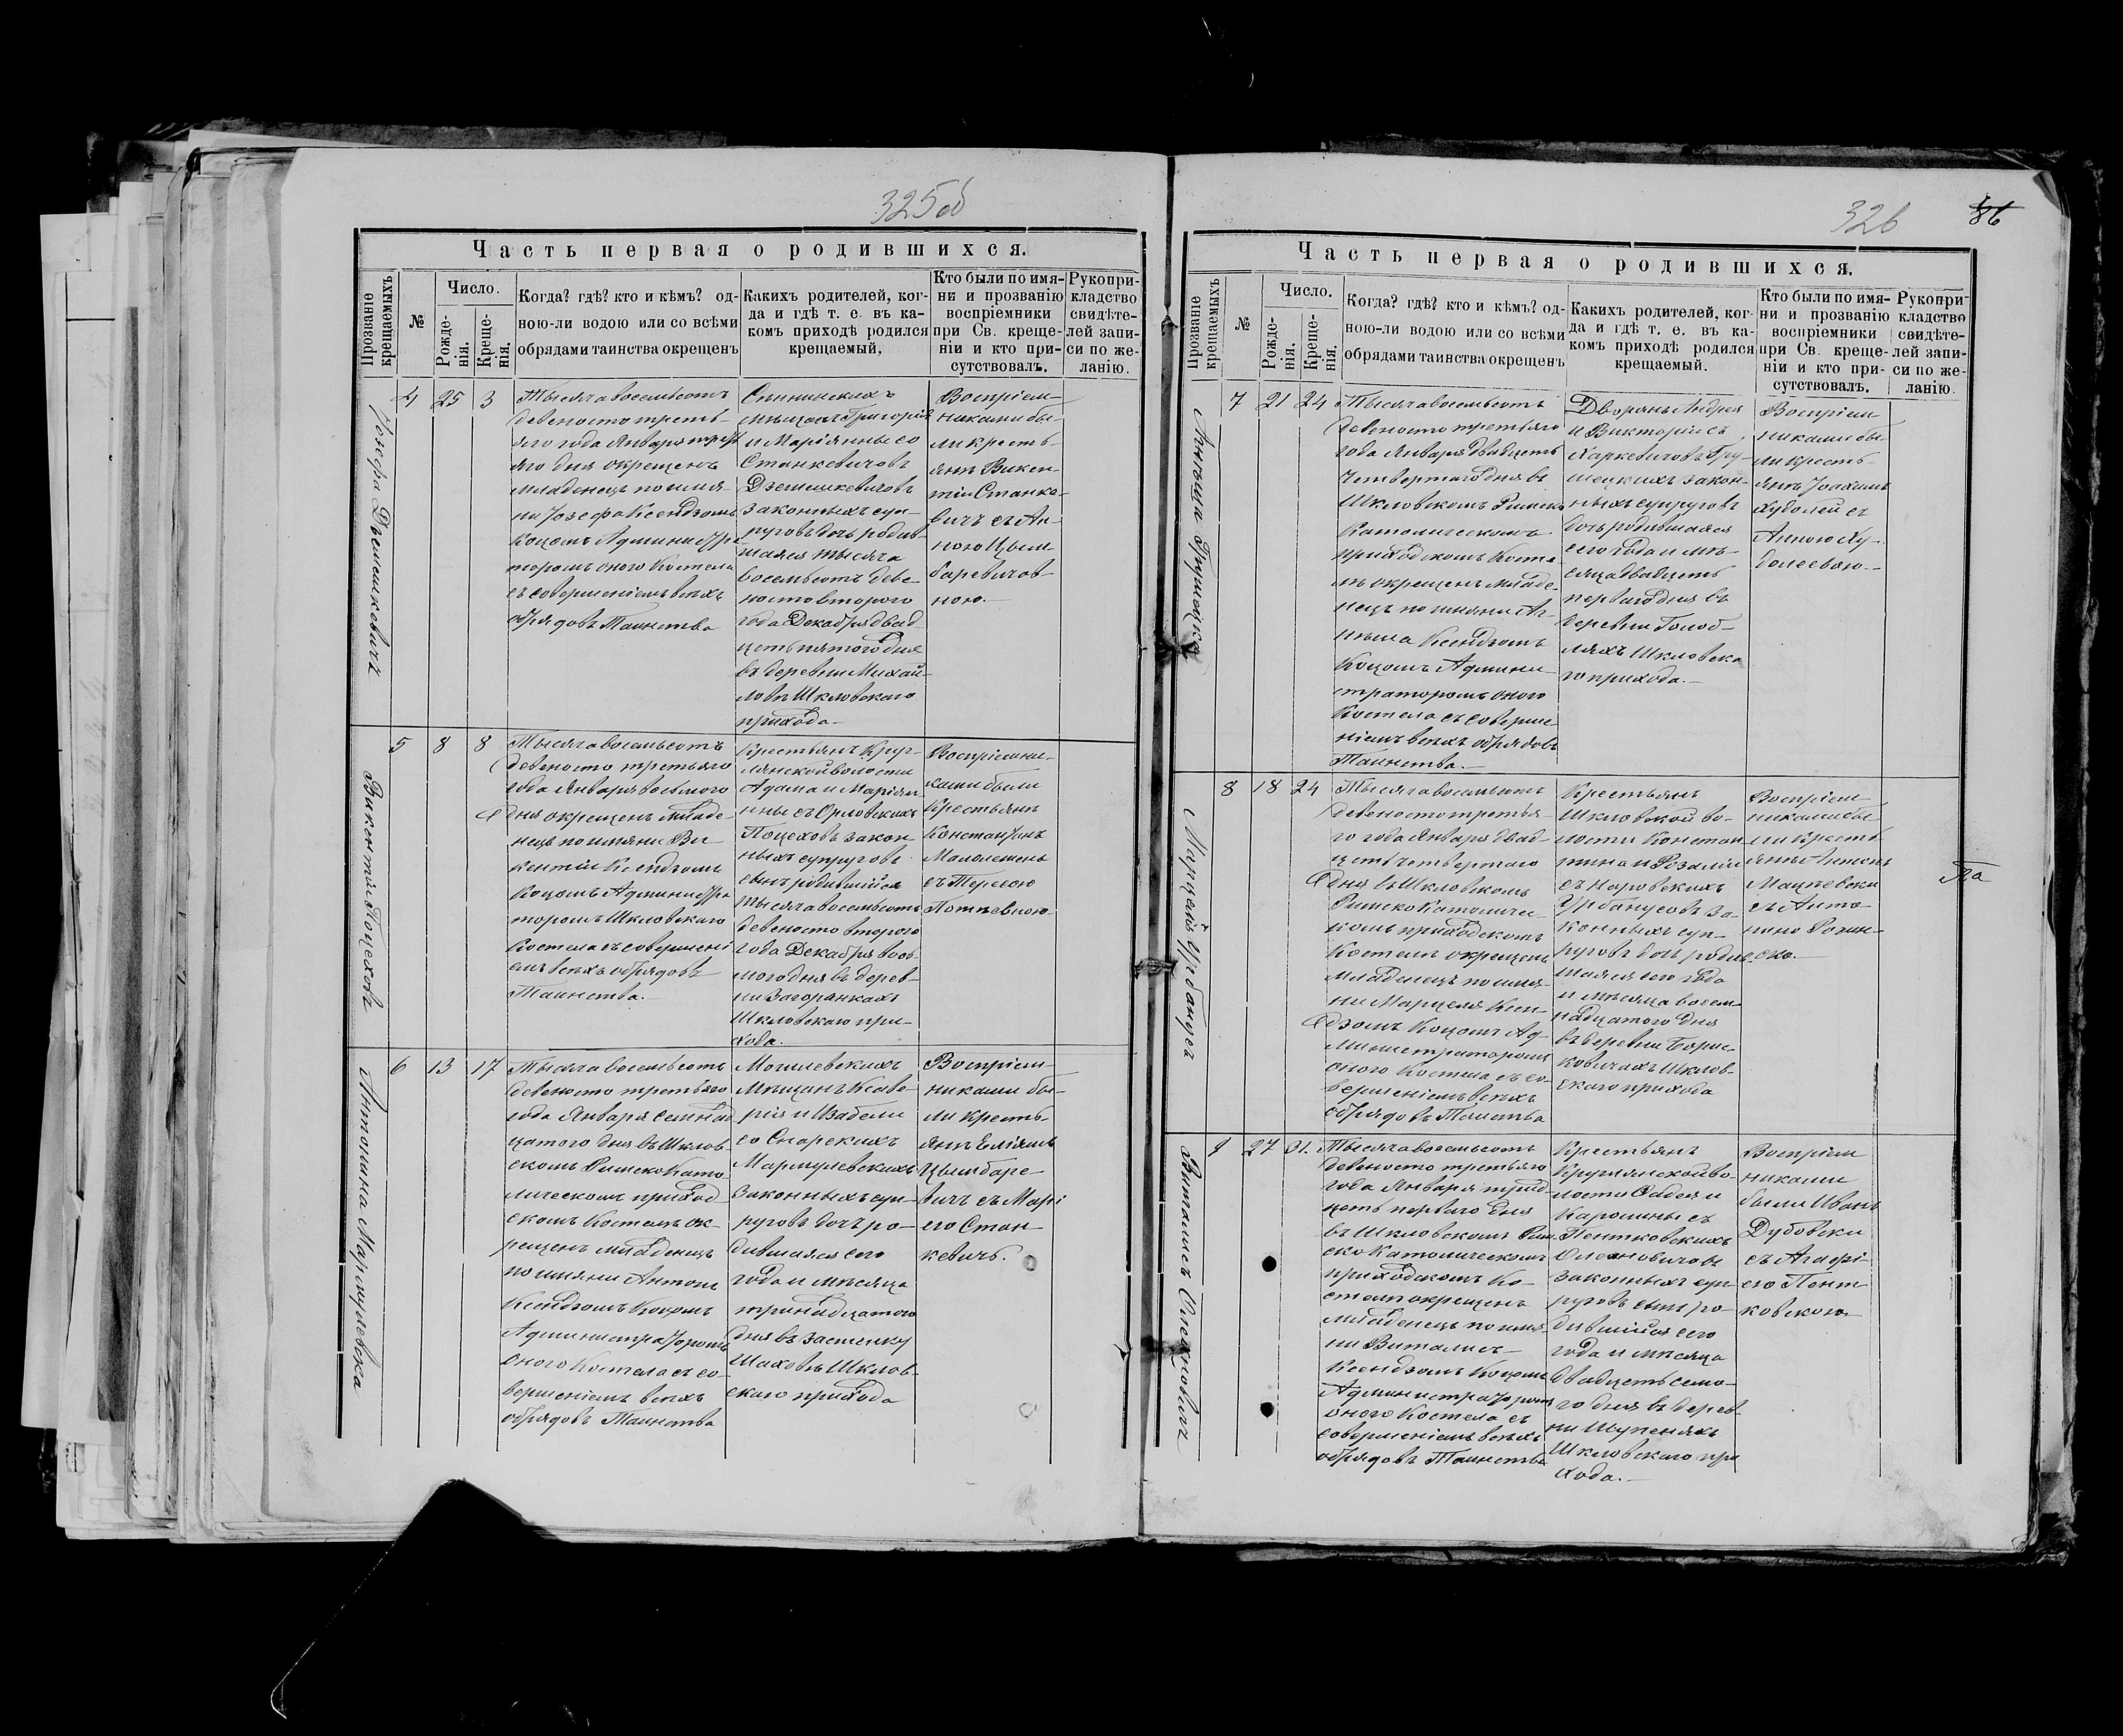 325об
Часть первая о родившихся.
Прозваніе крещаемыхъ
№
Число.
Рожде-
нія.
Креще-
нія.
Когда? гдѣ? кто и кѣмъ? од-
ною-ли водою или со всѣми
обрядами таинства окрещенъ
Какихъ родителей, ког-
да и гдѣ т. е. въ ка-
комъ приходѣ родился
крещаемый.
Кто были по имя-
ни и прозванію
воспріемники
при Св. креще-
ніи и кто при-
сутствовалъ.
Рукопри-
кладство
свидѣте-
лей запи-
си по же-
ланію.
Іозефа Дземешкевичъ
4
25
3
Тысяча восемьсотъ
девяносто треть-
яго года Января треть
яго дня окрещенъ
младенецъ по имя-
ни Іозефа Ксендзомъ
Коцомъ Администра
торомъ оного Костела
съ совершеніемъ всѣхъ
обрядовъ Таинства
мѣщанъ Григорія
и Маріянны со
Станкевичовъ
Дземешкевичовъ
законныхъ суп-
руговъ дочь родив-
шаяся тысяча
восемьсотъ девя-
носто второго
года Декабря двад
цать пятого дня
въ деревни Михай-
ловѣ Шкловскаго
прихода-
Воспріем-
никами бы-
ли кресть-
янъ Викен-
тій Станке-
вичъ съ Ан-
ною Цым-
баревичов-
ною.-
Викентій Поцеховъ
5
8
8
Тысяча восемьсотъ
девяносто третьяго
года Января восьмого
дня окрещенъ младе-
нецъ по имяни Ви-
кентій Ксендзомъ
Коцомъ Администра
торомъ Шкловскаго
Костела съ совершені
емъ всѣхъ обрядовъ
Таинства.-
Крестьянъ Круг-
лянской волости
Адама и Маріян-
ны съ Орловскихъ
Поцеховъ закон-
ныхъ супруговъ
сынъ родившійся
тысяча восемьсотъ
девяносто второго
года Декабря вось-
мого дня въ дерев-
ни Загоранкахъ
Шкловскаго при-
хода.
Воспріемни-
ками были
Крестьянъ
Константинъ
съ Терезою
Антонина Маркулевска
6
13
17
Тысяча восемьсотъ
девяносто третьяго
года Января семнад
цатого дня въ Шклов
скомъ Римско Като-
лическомъ приход
скомъ Костелѣ ок-
рещенъ младенецъ
по имяни Антони
Ксендзомъ Коцомъ
Администраторомъ
оного Костела съ со-
вершеніемъ всѣхъ
обрядовъ Таинства
Могилевскихъ
Мѣщанъ Ксаве-
рія и Изабели
со Снарскихъ
Маркулевскихъ
законныхъ суп-
руговъ дочь ро-
дившаяся сего
года и мѣсяца
тринадцатого
дня въ застенку
Шаховѣ Шклов-
скаго прихода
Воспріем-
никами бы-
ли Кресть-
янъ Еліяшъ
Цымбаре-
вичъ съ Марі
ею Стан-
кевичъ.
326
86
Часть первая о родившихся.
Прозваніе крещаемыхъ
№
Число.
Рожде-
нія.
Креще-
нія.
Когда? гдѣ? кто и кѣмъ? од-
ною-ли водою или со всѣми
обрядами таинства окрещенъ
Какихъ родителей, ког-
да и гдѣ т. е. въ ка-
комъ приходѣ родился
крещаемый.
Кто были по имя-
ни и прозванію
воспріемники
при Св. креще-
ніи и кто при-
сутствовалъ.
Рукопри-
кладство
свидѣте-
лей запи-
си по же-
ланію.
7
21
24
Тысяча восемьсотъ
девяносто третьяго
года Января двадцать
четвертаго дня въ
Шкловскомъ Римско
Католическомъ
приходскомъ Косте-
лѣ окрещенъ младе-
нецъ по имяни Аг-
нѣша Ксендзомъ
Коцомъ Админи-
страторомъ оного
Костела съ соверше-
ніемъ всѣхъ обрядовъ
Таинства.-
Дворянъ Андрея
и Викторіи съ
Харкевичовъ Гру-
шецкихъ закон-
ныхъ супруговъ
дочь родившаяся
сего года и мѣ-
сяца двадцать
перваго дня въ
деревни Голоб-
ляхъ Шкловска
го прихода.-
Воспріем
никами бы-
ли кресть-
янъ Іоахимъ
Худолей съ
Анною Ху-
долеевою.-
Марцелій Урбанусъ
8
18
24
Тысяча восемьсотъ
девяносто третья-
го года Января двад-
цать четвертаго
дня въ Шкловскомъ
Римско Католиче-
комъ приходскомъ
Костелѣ окрещенъ
младенецъ по имя-
ни Марцеля Ксен-
дзомъ Коцомъ Ад-
министраторомъ
оного Костела съ со-
вершеніемъ всѣхъ
обрядовъ Таинства
Крестьянъ
Шкловской во-
лости Констан
тина и Розаліи
съ Наровскихъ
Урбанусовъ за-
конныхъ суп-
руговъ дочь родив-
шаяся сего года
и мѣсяца восем-
надцатого дня
въ деревни Борис-
ковичахъ Шклов-
скаго прихода
Воспріем
никами бы
ли кресть
янъ Антонъ
Мацѣевски
съ Анто-
ниною
Па
Виталисъ Олехновичъ
9
27
31.
Тысяча восемьсотъ
девяносто третьяго
года Января трид-
цать перваго дня
въ Шкловскомъ Рим
ско Католическомъ
приходскомъ Ко-
стелѣ окрещенъ
младенецъ по имя-
ни Виталисъ
Ксендзомъ Коцомъ
Администраторомъ
оного Костела съ
совершеніемъ всѣхъ
обрядовъ Таинства
Крестьянъ
Круглянской во-
лости Фадея и
Каролины съ
Пентковскихъ
Олехновичовъ
законныхъ суп-
руговъ сынъ ро-
дившійся сего
года и мѣсяца
двадцать семо-
го дня въ дерев-
ни Шупеняхъ
Шкловскаго при
хода.-
Воспріем
никами
были Иванъ
Дубовски
съ Агафі-
ею Пент
ковскою